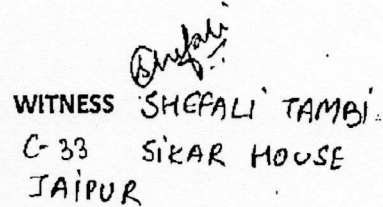 Shefali
WITNESS SHEFALI TAMBI
C-33 SIKAR HOUSE
JAIPUR